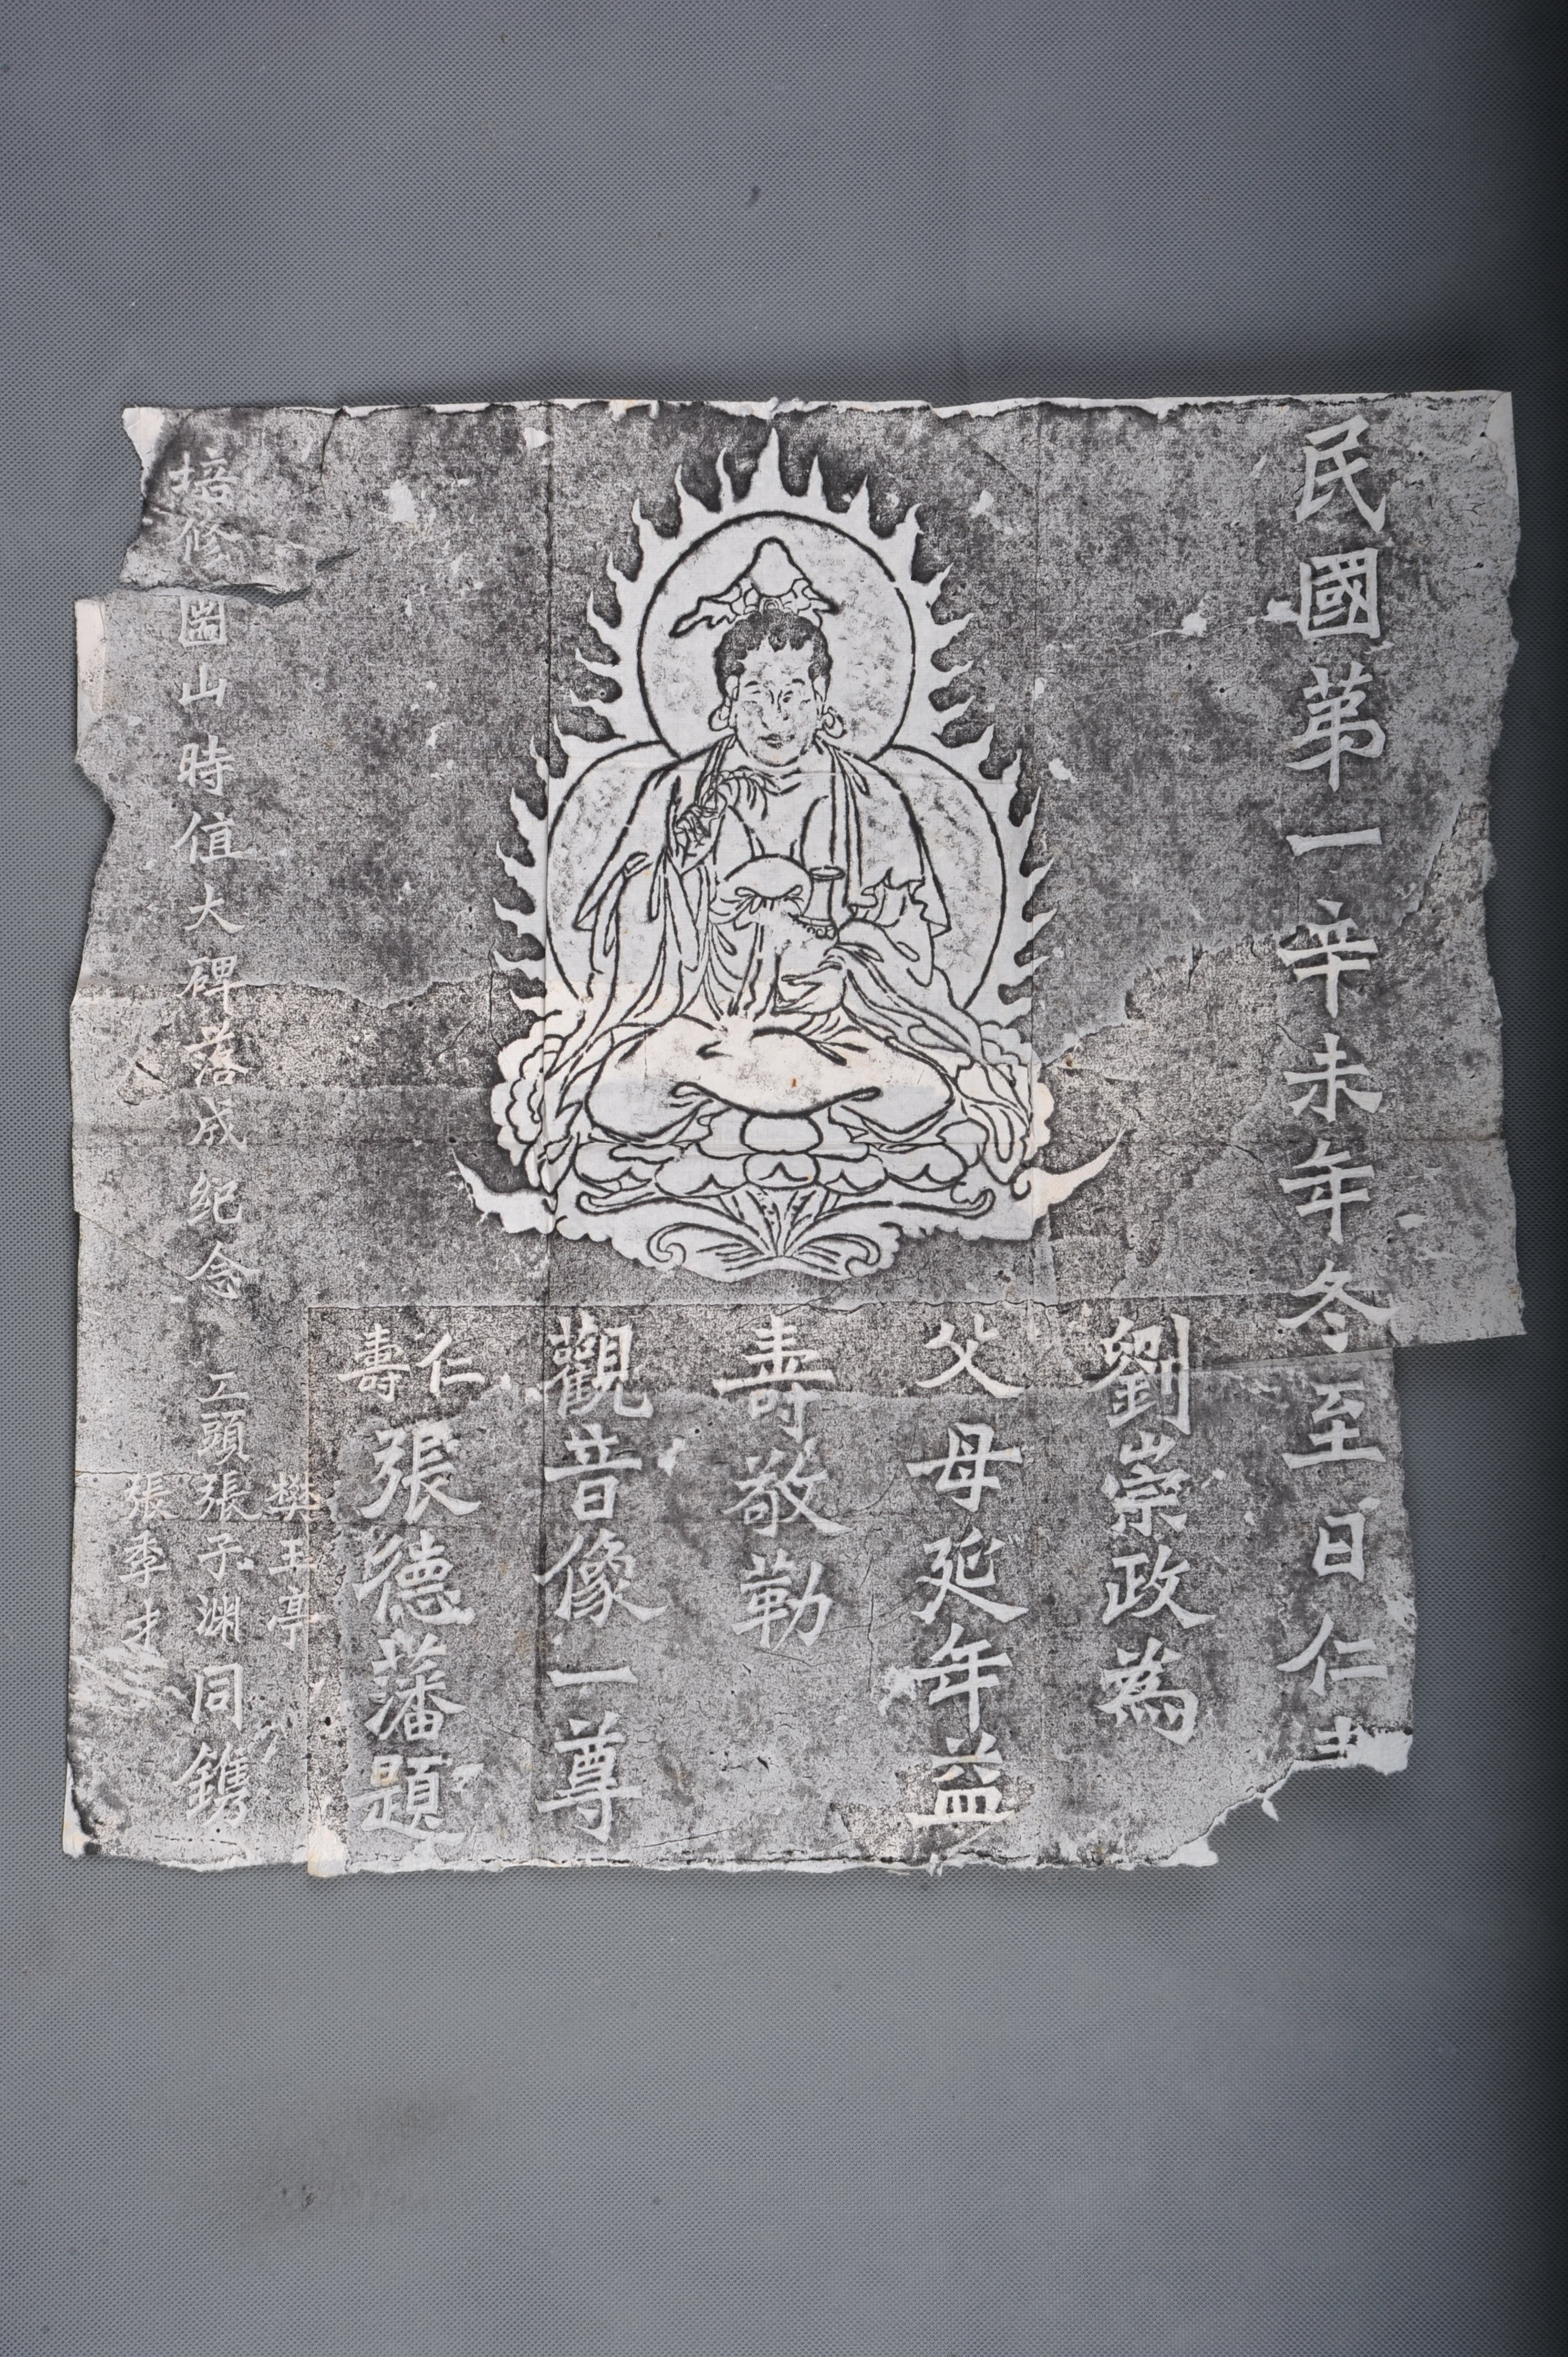 民國第一辛未年冬至日仁
劉崇政為
父母延年益
壽敬勒
觀音像一尊
仁壽張德藩題
培修圌山時值大碑落成紀念
工頭
樊王亭
張子渊
張季才
同鐫